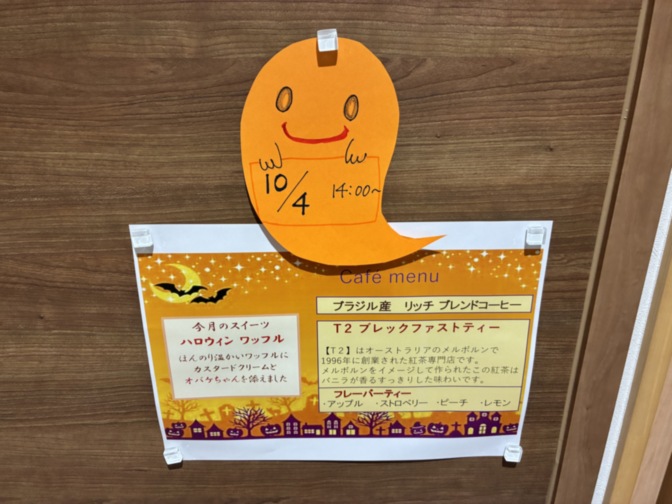 10/4 14:00~
Cafe menu
今月のスイーツ
ハロウィン ワッフル
ほんのり温かいワッフルに
カスタードクリームと
オバケちゃんを添えました
ブラジル産 リッチ ブレンドコーヒー
T2 ブレックファストティー
【T2】はオーストラリアのメルボルンで
1996年に創業された紅茶専門店です。
メルボルンをイメージして作られたこの紅茶は
バニラが香るすっきりした味わいです。
フレーバーティー
・アップル ・ストロベリー ・ピーチ ・レモン